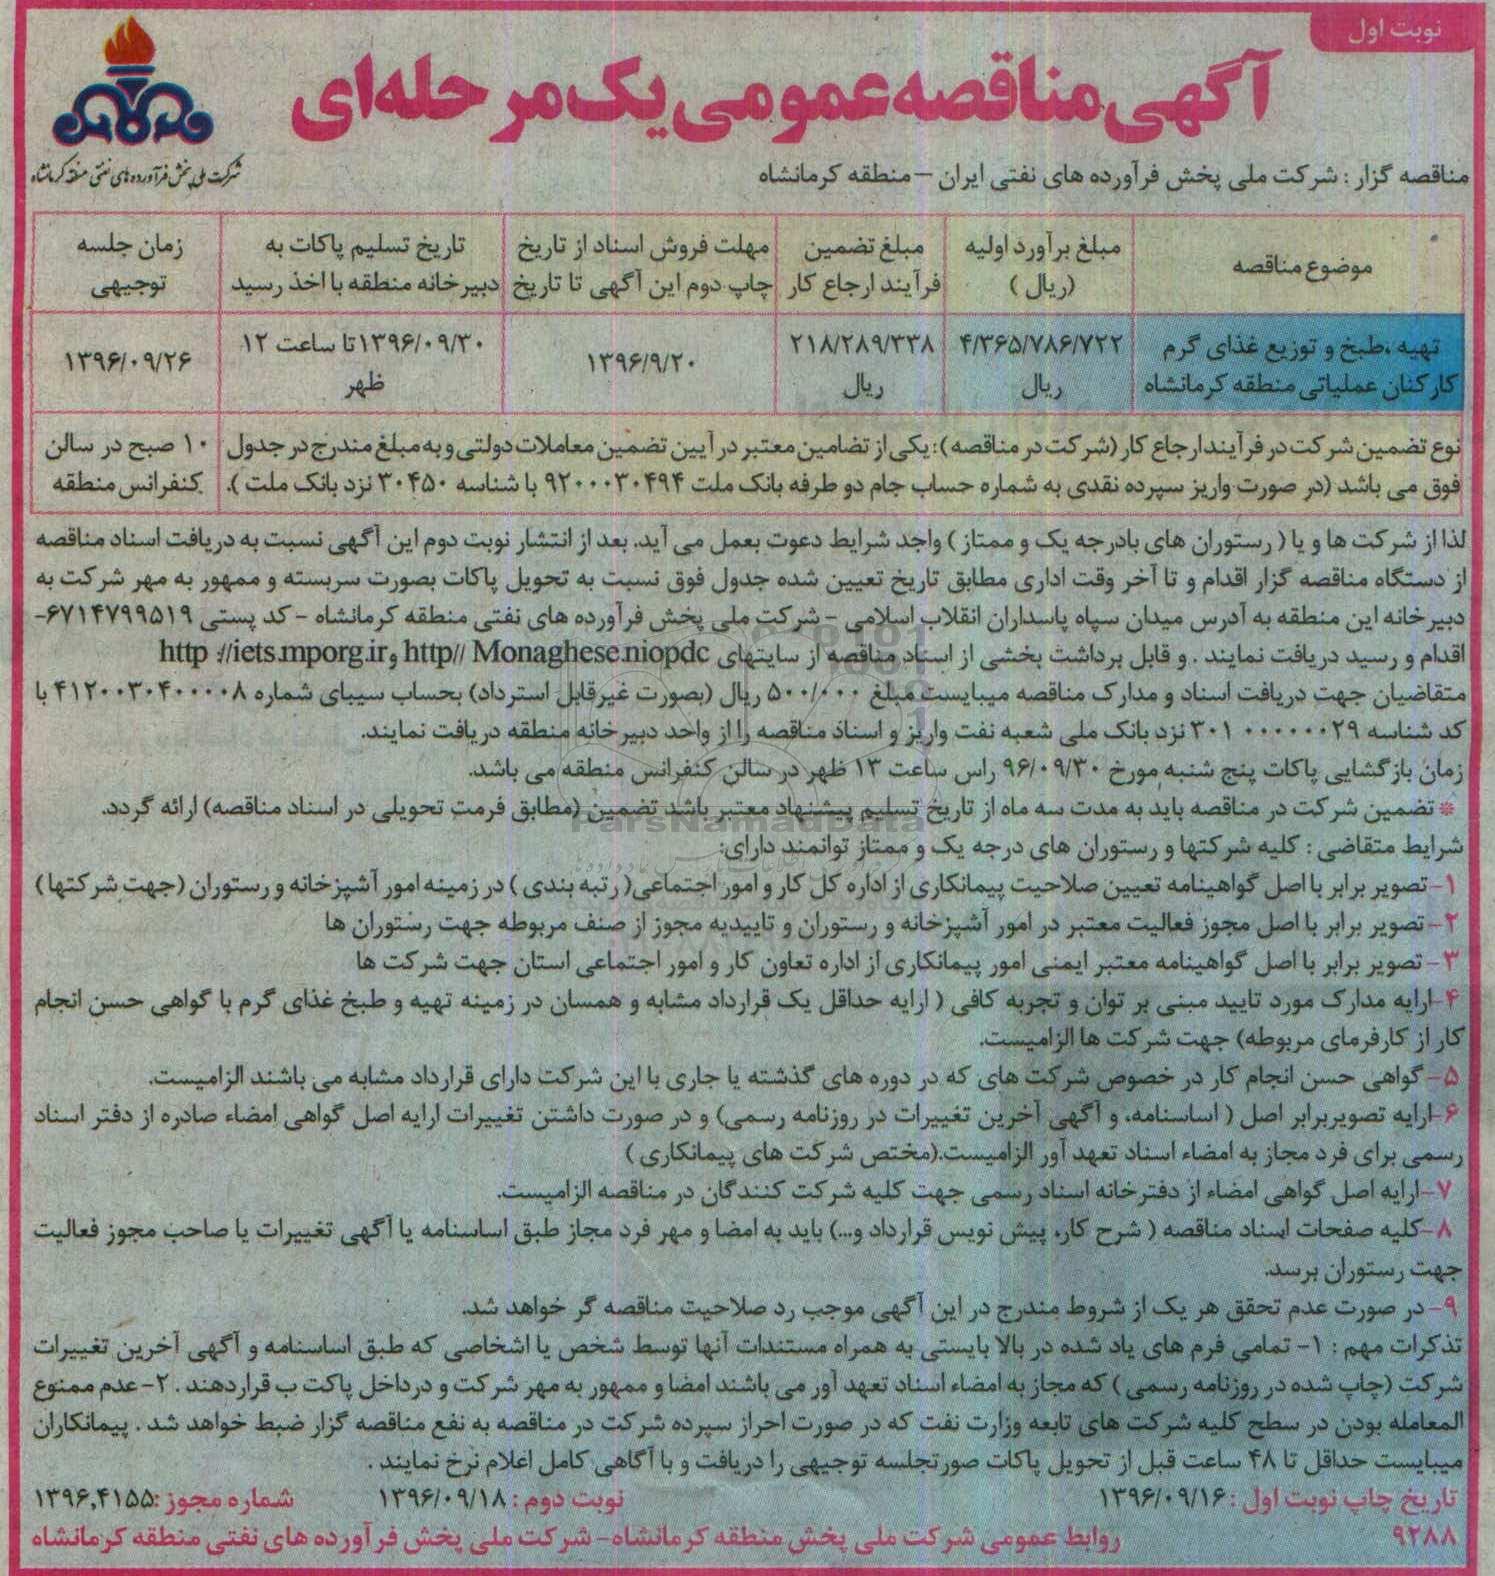 نوبت اول
آگهی مناقصه عمومی یک مرحله‌ای
شرکت ملی پخش فرآورده‌های نفتی منطقه کرمانشاه
مناقصه گزار : شرکت ملی پخش فرآورده های نفتی ایران – منطقه کرمانشاه
موضوع مناقصه
مبلغ برآورد اولیه
(ریال )
مبلغ تضمین
فرآیند ارجاع کار
مهلت فروش اسناد از تاریخ
چاپ دوم این آگهی تا تاریخ
تاریخ تسلیم پاکات به
دبیرخانه منطقه با اخذ رسید
زمان جلسه
توجیهی
تهیه ،طبخ و توزیع غذای گرم
کارکنان عملیاتی منطقه کرمانشاه
۴/۳۶۵/۷۸۶/۷۲۲
ریال
۲۱۸/۲۸۹/۳۳۸
ریال
۱۳۹۶/۹/۲۰
۱۳۹۶/۰۹/۳۰تا ساعت ۱۲
ظهر
۱۳۹۶/۰۹/۲۶
نوع تضمین شرکت در فرآیند ارجاع کار (شرکت در مناقصه ) : یکی از تضامین معتبر در آیین تضمین معاملات دولتی و به مبلغ مندرج در جدول
فوق می باشد (در صورت واریز سپرده نقدی به شماره حساب جام دو طرفه بانک ملت ۹۲۰۰۰۳۰۴۹۴ با شناسه ۳۰۴۵۰ نزد بانک ملت ).
۱۰ صبح در سالن
کنفرانس منطقه
لذا از شرکت ها و یا ( رستوران های بادرجه یک و ممتاز ) واجد شرایط دعوت بعمل می آید. بعد از انتشار نوبت دوم این آگهی نسبت به دریافت اسناد مناقصه
از دستگاه مناقصه گزار اقدام و تا آخر وقت اداری مطابق تاریخ تعیین شده جدول فوق نسبت به تحویل پاکات بصورت سربسته و ممهور به مهر شرکت به
دبیرخانه این منطقه به آدرس میدان سپاه پاسداران انقلاب اسلامی - شرکت ملی پخش فرآورده های نفتی منطقه کرمانشاه - کد پستی ۶۷۱۴۷۹۹۵۱۹-
اقدام و رسید دریافت نمایند . و قابل برداشت بخشی از اسناد مناقصه از سایتهای http// Monaghese.niopdc و http ://iets.mporg.ir
متقاضیان جهت دریافت اسناد و مدارک مناقصه میبایست مبلغ ۵۰۰/۰۰۰ ریال (بصورت غیرقابل استرداد) بحساب سیبای شماره ۴۱۲۰۰۳۰۴۰۰۰۰۸ با
کد شناسه ۳۰۱۰۰۰۰۰۰۰۲۹ نزد بانک ملی شعبه نفت واریز و اسناد مناقصه را از واحد دبیرخانه منطقه دریافت نمایند.
زمان بازگشایی پاکات پنج شنبه مورخ ۹۶/۰۹/۳۰ راس ساعت ۱۳ ظهر در سالن کنفرانس منطقه می باشد.
* تضمین شرکت در مناقصه باید به مدت سه ماه از تاریخ تسلیم پیشنهاد معتبر باشد تضمین (مطابق فرمت تحویلی در اسناد مناقصه) ارائه گردد.
ParsNamadData
شرایط متقاضی : کلیه شرکتها و رستوران های درجه یک و ممتاز توانمند دارای:
۱- تصویر برابر با اصل گواهینامه تعیین صلاحیت پیمانکاری از اداره کل کار و امور اجتماعی( رتبه بندی ) در زمینه امور آشپزخانه و رستوران (جهت شرکتها )
۲- تصویر برابر با اصل مجوز فعالیت معتبر در امور آشپزخانه و رستوران و تاییدیه مجوز از صنف مربوطه جهت رستوران ها
۳- تصویر برابر با اصل گواهینامه معتبر ایمنی امور پیمانکاری از اداره تعاون کار و امور اجتماعی استان جهت شرکت ها
۴-ارایه مدارک مورد تایید مبنی بر توان و تجربه کافی ( ارایه حداقل یک قرارداد مشابه و همسان در زمینه تهیه و طبخ غذای گرم با گواهی حسن انجام
کار از کارفرمای مربوطه) جهت شرکت ها الزامیست.
۵- گواهی حسن انجام کار در خصوص شرکت های که در دوره های گذشته یا جاری با این شرکت دارای قرارداد مشابه می باشند الزامیست.
۶-ارایه تصویربرابر اصل ( اساسنامه، و آگهی آخرین تغییرات در روزنامه رسمی) و در صورت داشتن تغییرات ارایه اصل گواهی امضاء صادره از دفتر اسناد
رسمی برای فرد مجاز به امضاء اسناد تعهد آور الزامیست.(مختص شرکت های پیمانکاری )
۷-ارایه اصل گواهی امضاء از دفترخانه اسناد رسمی جهت کلیه شرکت کنندگان در مناقصه الزامیست.
۸-کلیه صفحات اسناد مناقصه ( شرح کار، پیش نویس قرارداد و...) باید به امضا و مهر فرد مجاز طبق اساسنامه یا آگهی تغییرات یا صاحب مجوز فعالیت
جهت رستوران برسد.
۹- در صورت عدم تحقق هر یک از شروط مندرج در این آگهی موجب رد صلاحیت مناقصه گر خواهد شد.
تذکرات مهم : ۱- تمامی فرم های یاد شده در بالا بایستی به همراه مستندات آنها توسط شخص یا اشخاصی که طبق اساسنامه و آگهی آخرین تغییرات
شرکت (چاپ شده در روزنامه رسمی ) که مجاز به امضاء اسناد تعهد آور می باشند امضا و ممهور به مهر شرکت و درداخل پاکت ب قراردهند . ۲-عدم ممنوع
المعامله بودن در سطح کلیه شرکت های تابعه وزارت نفت که در صورت احراز سپرده شرکت در مناقصه به نفع مناقصه گزار ضبط خواهد شد . پیمانکاران
میبایست حداقل تا ۴۸ ساعت قبل از تحویل پاکات صورتجلسه توجیهی را دریافت و با آگاهی کامل اعلام نرخ نمایند .
تاریخ چاپ نوبت اول : ۱۳۹۶/۰۹/۱۶ نوبت دوم : ۱۳۹۶/۰۹/۱۸ شماره مجوز :۱۳۹۶,۴۱۵۵
۹۲۸۸ روابط عمومی شرکت ملی پخش منطقه کرمانشاه- شرکت ملی پخش فرآورده های نفتی منطقه کرمانشاه